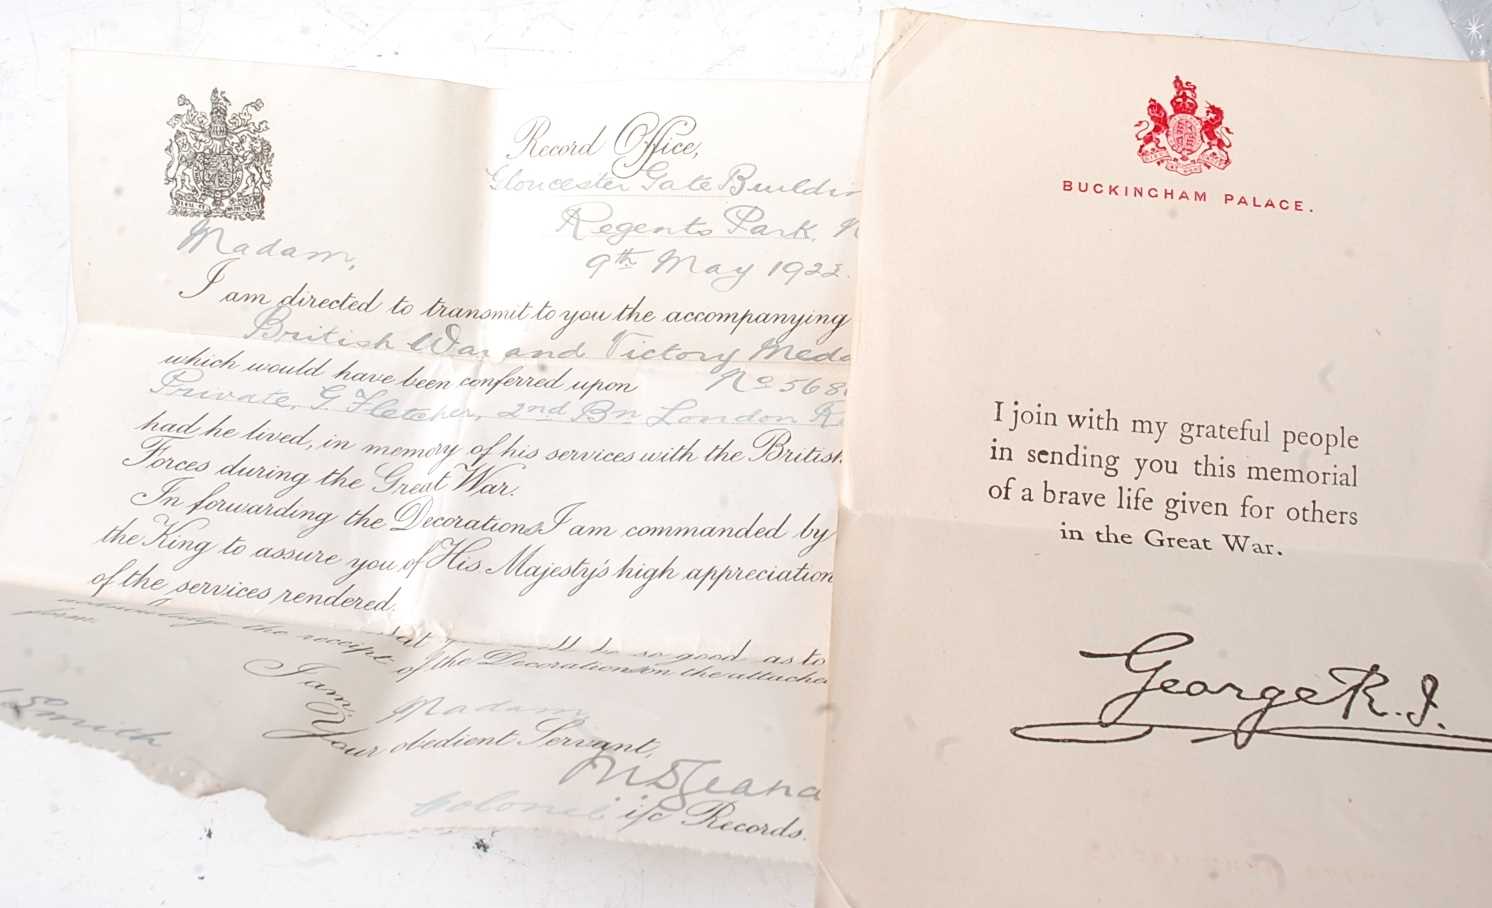 Record Office,
Gloucester Gate Buildin
Regents Park, N
9th May 1922.
Madam,
I am directed to transmit to you the accompanying
British War and Victory Meda
which would have been conferred upon No 568
Private, G. Fletcher, 2nd Bn London R
had he lived, in memory of his services with the British
Forces during the Great War.
In forwarding the Decorations I am commanded by
the King to assure you of His Majesty's high appreciation
of the services rendered.
so good as to
acknowledge the receipt of the Decorations on the attached
form.
I am,
Madam,
Your obedient Servant,
Smith
Colonel i/c Records.
BUCKINGHAM PALACE.
I join with my grateful people
in sending you this memorial
of a brave life given for others
in the Great War.
George R.I.